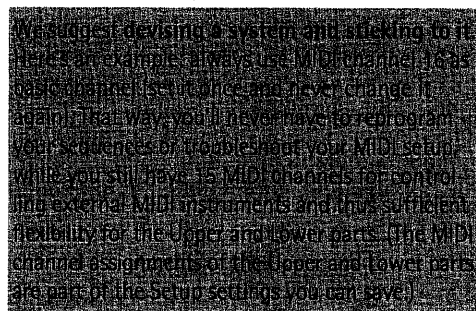 We suggest devising a system and sticking to it.
Here's an example: always use MIDI channel 16 as
basic channel (set it once and never change it
again). That way, you'll never have to reprogram
your sequences or troubleshoot your MIDI setup
while you still have 15 MIDI channels for control-
ling external MIDI instruments and thus sufficient
flexibility for the Upper and Lower parts. (The MIDI
channel assignments of the Upper and Lower parts
are part of the Setup settings you can save.)